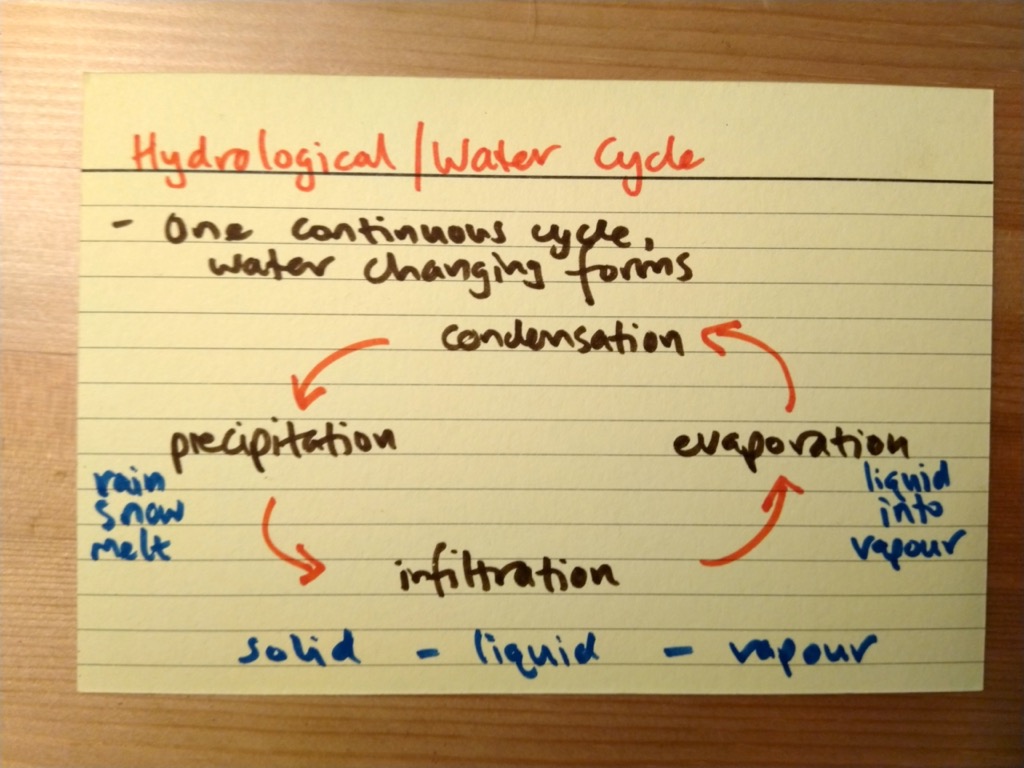 Hydrological/Water Cycle
- One continuous cycle,
water changing forms
condensation
precipitation
evaporation
rain
snow
melt
liquid
into
vapour
infiltration
solid - liquid - vapour